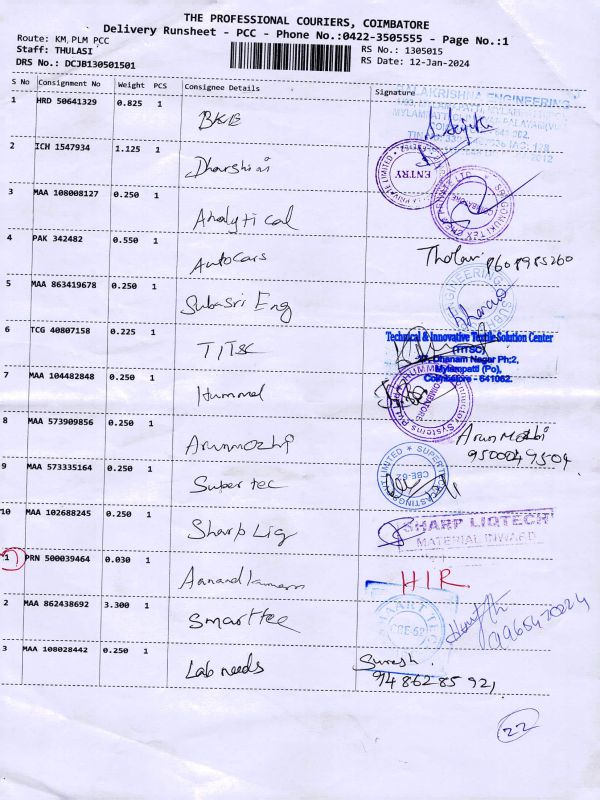 THE PROFESSIONAL COURIERS, COIMBATORE
Delivery Runsheet - PCC - Phone No.:0422-3505555 - Page No.:1
Route: KM,PLM PCC
RS No.: 1305015
Staff: THULASI
RS Date: 12-Jan-2024
DRS No.: DCJB130501501
S No Consignment No Weight PCS Consignee Details Signature
1 HRD 50641329 0.825 1 BKE
BALAKRISHNA ENGINEERING
2 ICH 1547934 1.125 1 Dharshini
ENTRY
3 MAA 108008127 0.250 1 Analytical
4 PAK 342482 0.550 1 Autocars
5 MAA 863419678 0.250 1 Subasri Eng
6 TCG 40807158 0.225 1 TITSC
Technical & Innovative Textile Solution Center
(TITSC)
Dhanam Nagar Ph:2,
Mylampatti (Po),
Coimbatore - 641062.
7 MAA 104482848 0.250 1 Hummel
8 MAA 573909856 0.250 1 Arunmozhi
9 MAA 573335164 0.250 1 Super tec
10 MAA 102688245 0.250 1 Sharp Liq
SHARP LIQTECH
MATERIAL INWARD
1 PRN 500039464 0.030 1
HIR
2 MAA 862438692 3.300 1 Smarttec
9965470224
3 MAA 108028442 0.250 1 Lab needs Suresh.
9486285921
22